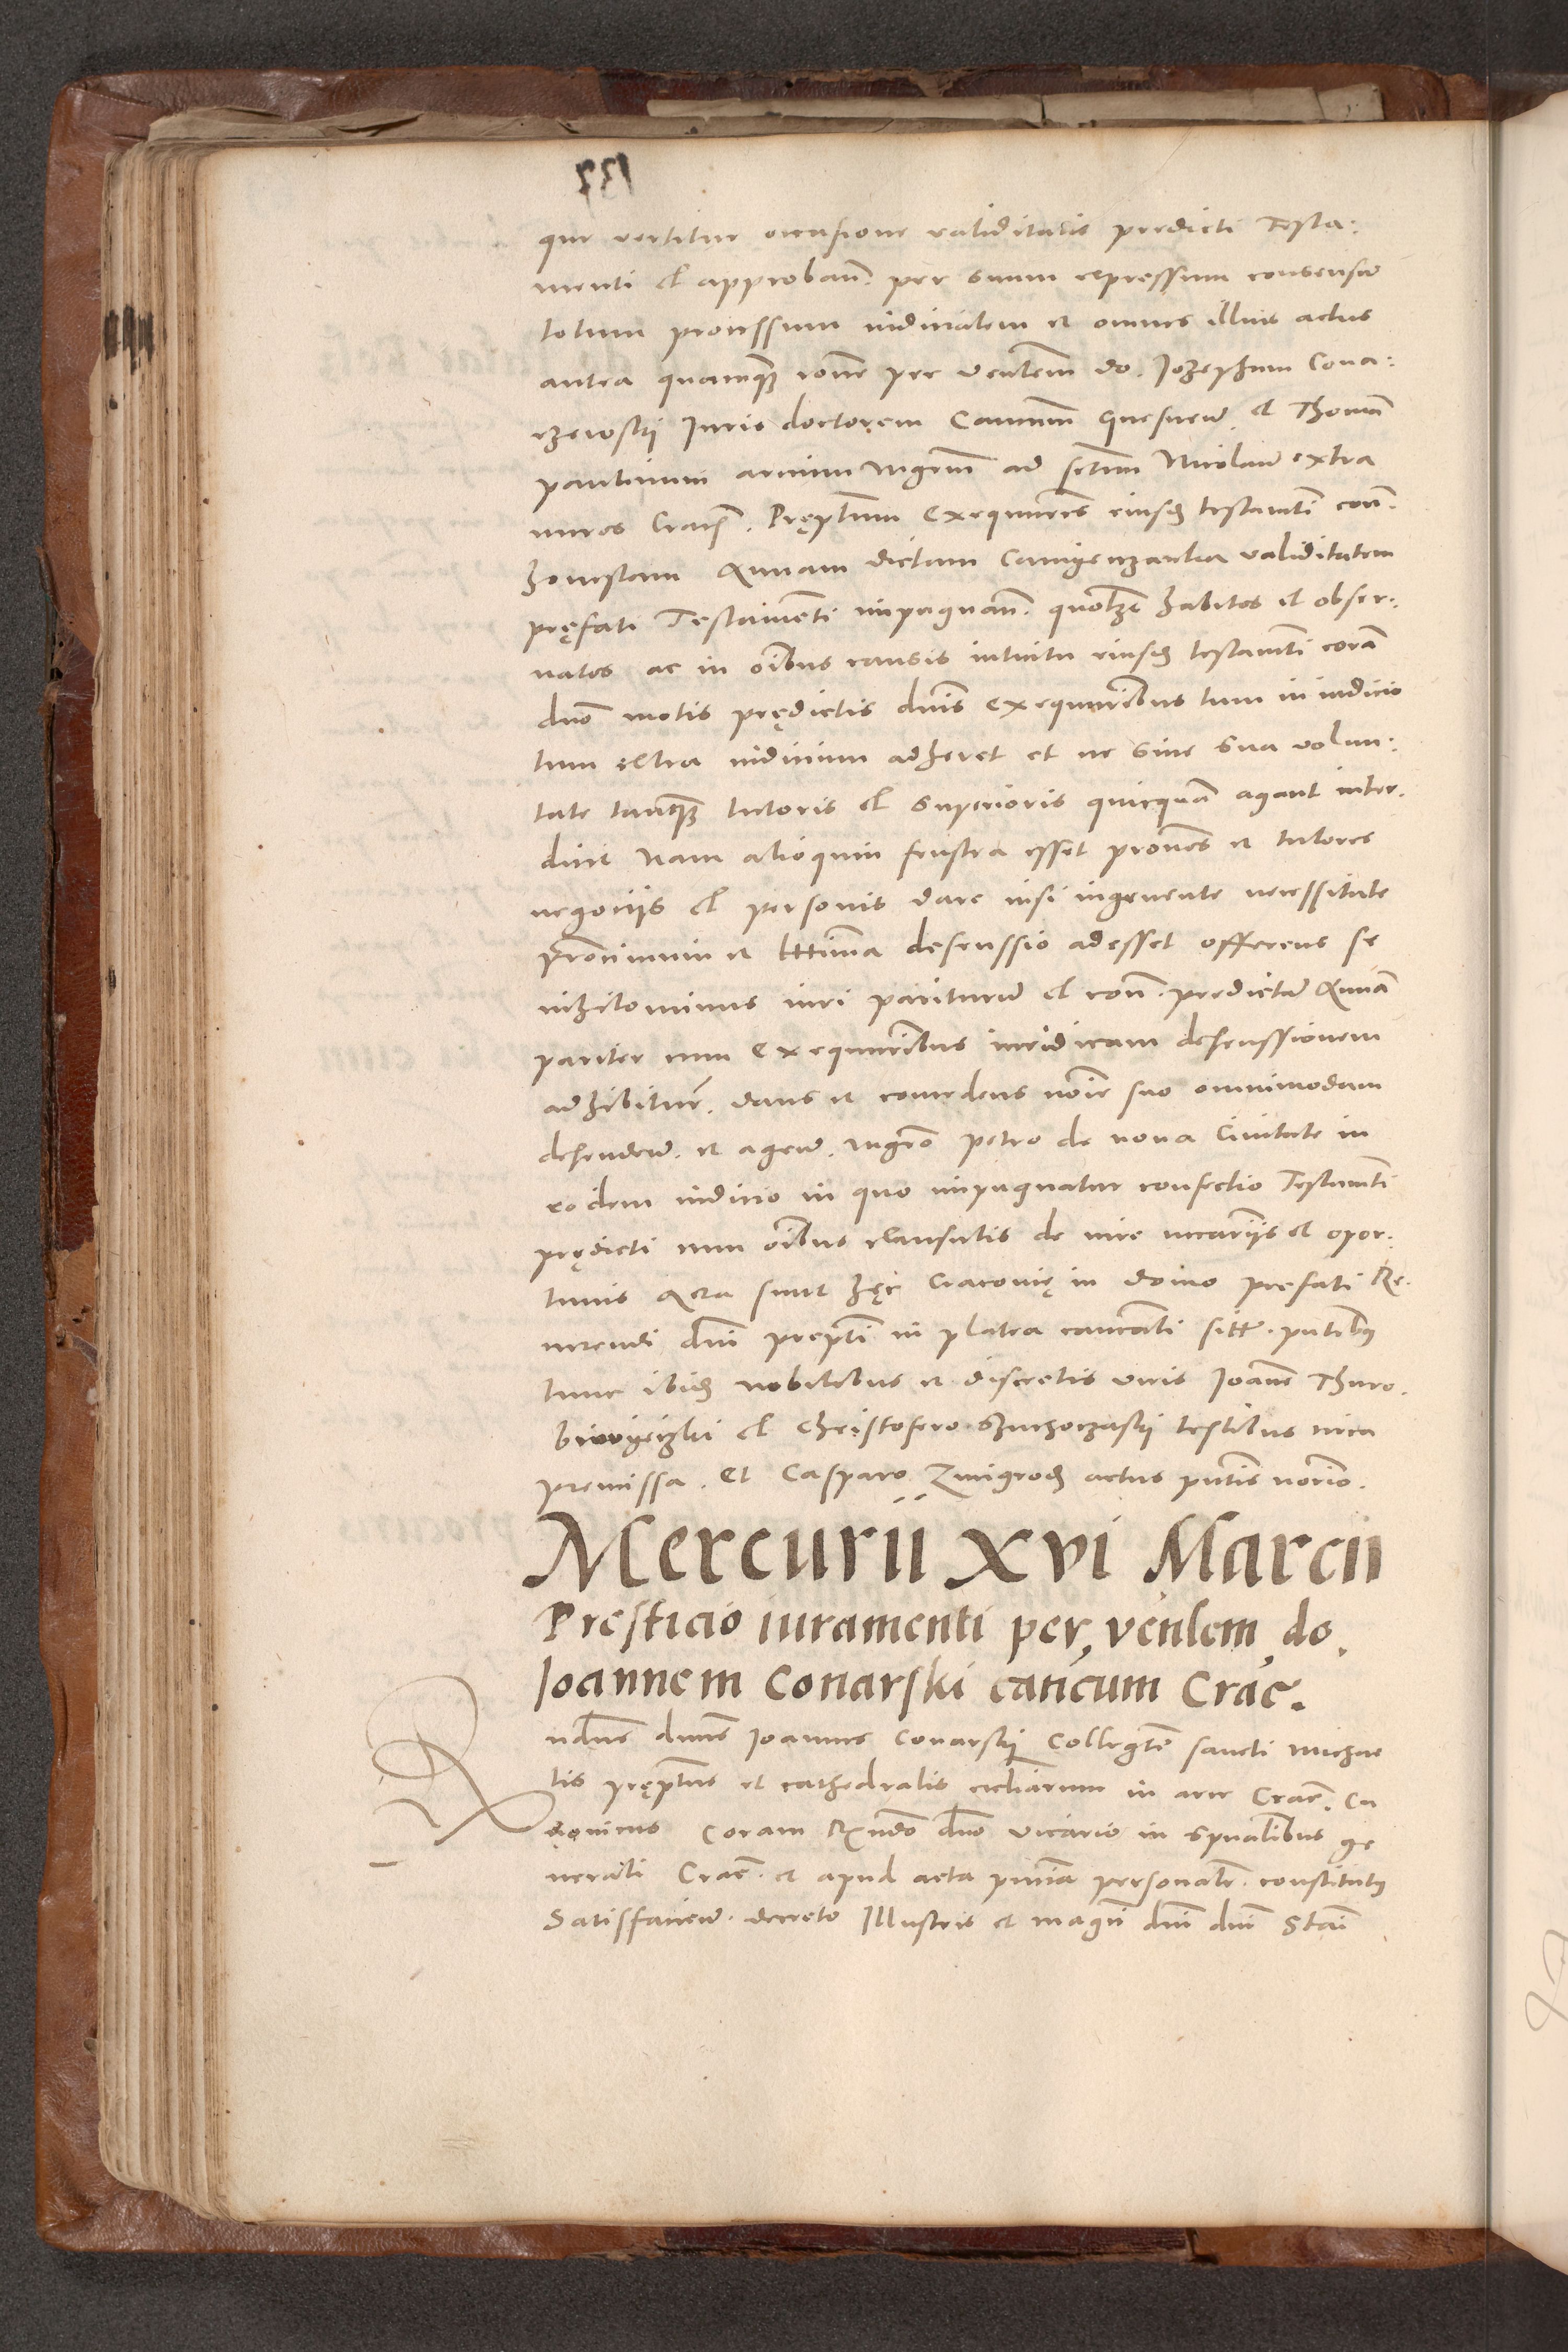 137
que vertitur occasione validitatis predicti Testa:
menti et approban. per suum expressum consensu
totum processum iudicialem et omnes illius actus
antea quamqz coram per Venlem do. Iozephum Cona:
rzewskij Iuris doctorem Canonem Gnesnen. et Thomã
paulinum arcium Mgrm ad sctum Nicolaum extra
muros Crac. Pręptum exequutores eiusd testamti coñ.
honestam Annam dictam validitatem
pręfati Testamenti impugnañ. quolzt habitos et obser:
uatos ac in oibus causis intuitu eiusd testamti corã
duo motis prędictis dnis exequutoribus tum in iudicio
tum extra iudicium adheret et ne sine sua volun:
tate tanqz tutoris et superioris quicquã agant inter,
dicit Nam alioquin frustra esset procures et tutores
negociis et personis dare nisi ingruente necessitate
et lttima defenssio adesset offerens se
nihilominus iuri pariturum et coñ. predictam Annã
pariter cum exequutoribus iuridicam defenssionem
adhibiturũ. dans et concedens noie suo omnimodam
defendend. et agend. Mgro petro de noua Ciuitate in
eodem iudicio in quo impugnatur confectio Testamti
prędicti cum oibus clausulis de iure necariis et opor:
tunis Acta sunt hęc Cracouię in domo prefati Re.
uerendi dni prepti in platea canicali sitt. pntibus
tunc ibid nobilibus et discretis viris Ioanne Thuro.
et Christofero testibus circa
premissa. Et Casparo Zmigrod actus pntis norio.
Mercurii XVI Marcii
Presticio iuramenti per venlem do.
Ioannem Conarski canicum Crac.
Rndus dnus Ioannes Conarskij Collegte sancti Michae
lis pręptus et cathedralis eccliarum in arce Crac. Ca
nonicus Coram Rndo dno vicario in spualibus ge
nerali Crac. et apud acta pntia personalr. constitutus
Satisfaciend. decreto Illustris et magci dni dni Stai